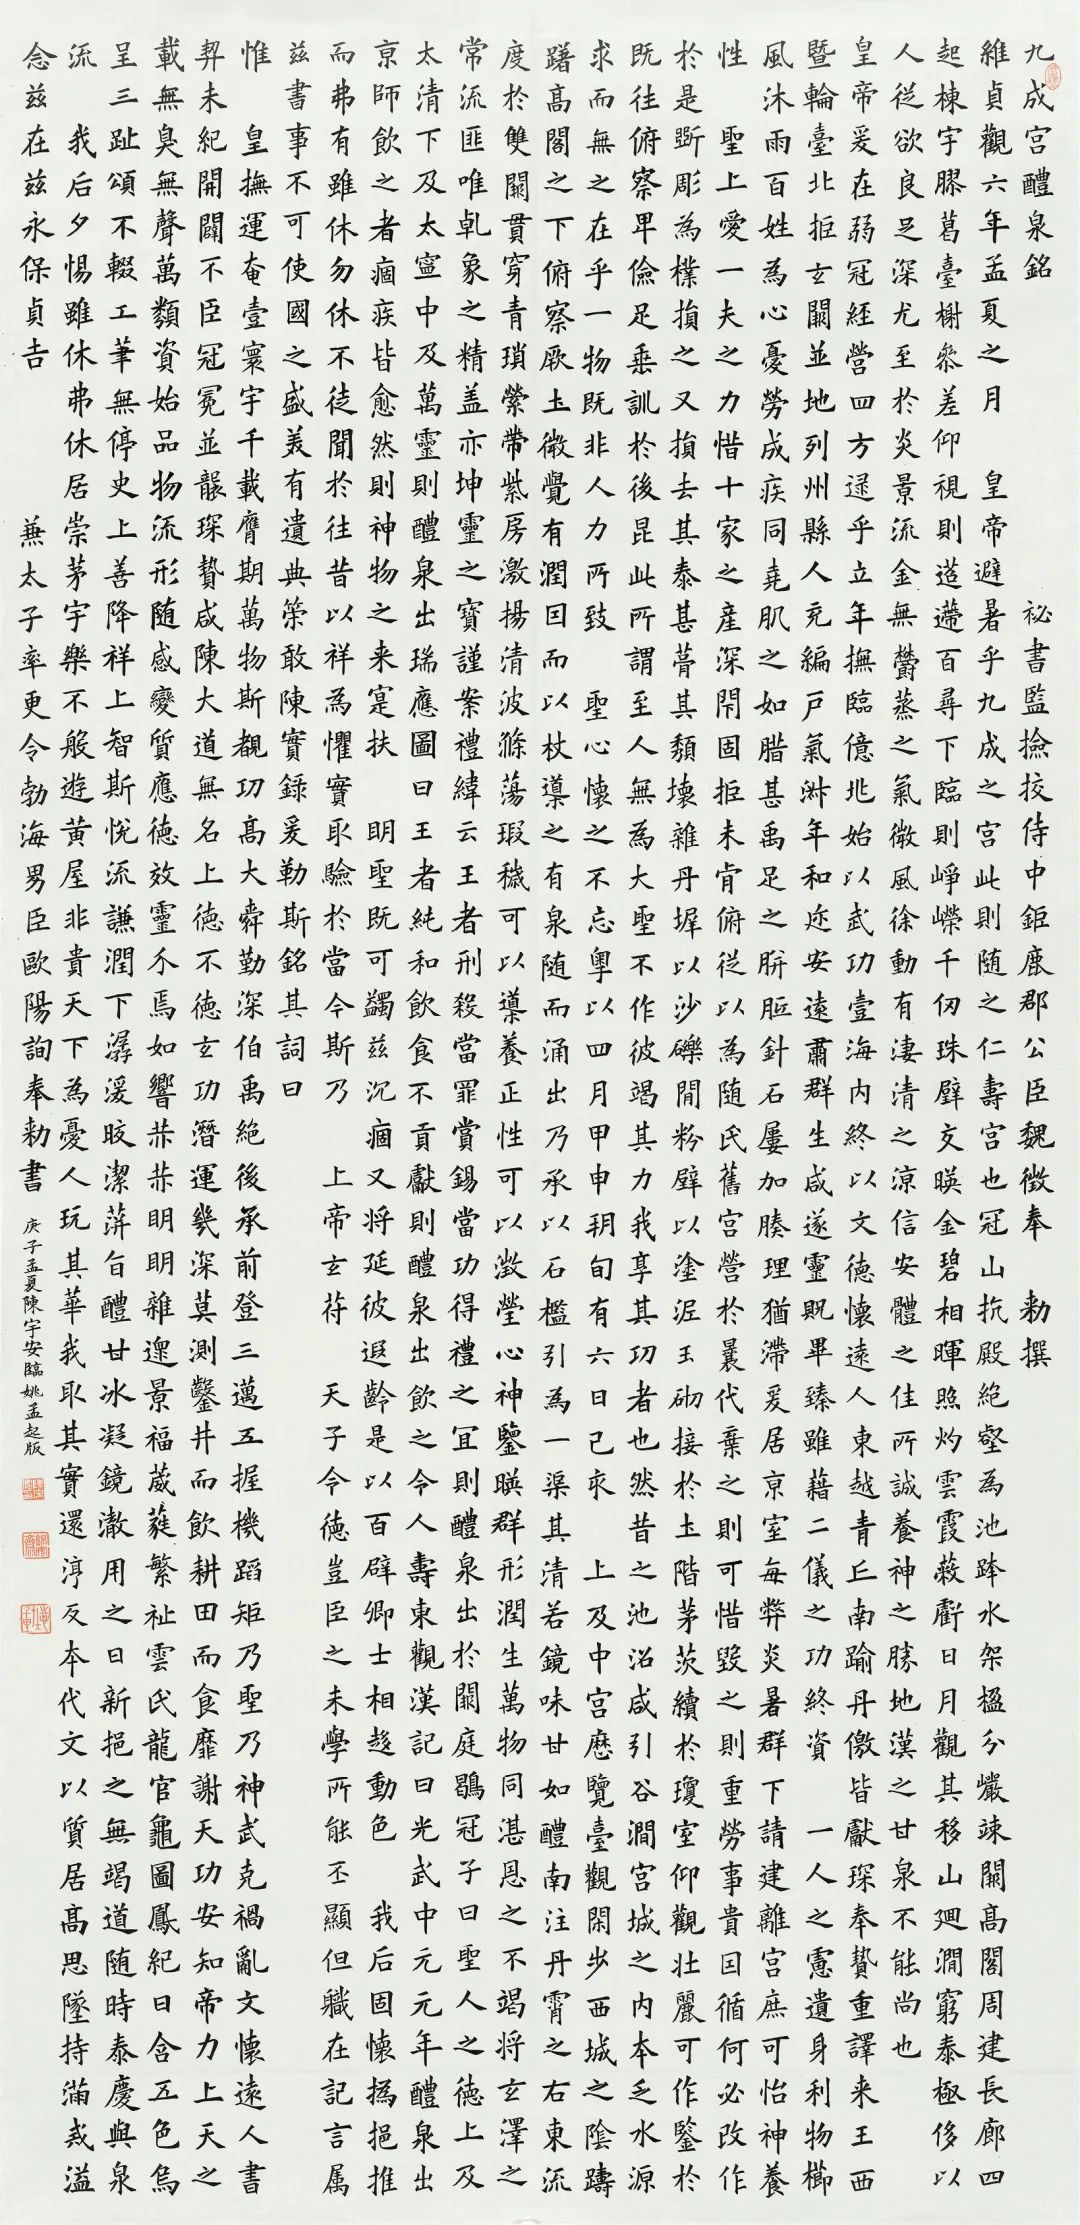 九成宮醴泉銘 祕書監撿挍侍中鉅鹿郡公臣魏徵奉 勅撰
維貞觀六年孟夏之月 皇帝避暑乎九成之宮此則随之仁壽宮也冠山抗殿絶壑為池跨水架楹分巖竦闕高閣周建長廊四
起棟宇膠葛臺榭叅差仰視則迢遰百尋下臨則崢嶸千仞珠璧交暎金碧相暉照灼雲霞蔽虧日月觀其移山迴澗窮泰極侈以
人從欲良足深尤至於炎景流金無鬱蒸之氣微風徐動有淒清之涼信安體之佳所誠養神之勝地漢之甘泉不能尚也
皇帝爰在弱冠經營四方逮乎立年撫臨億兆始以武功壹海内終以文徳懷遠人東越青丘南踰丹儌皆獻琛奉贄重譯来王西
暨輪臺北拒玄闕並地列州縣人充編戶氣淋年和迩安遠肅群生咸遂靈貺畢臻雖藉二儀之功終資一人之慮遺身利物櫛
風沐雨百姓為心憂勞成疾同堯肌之如腊甚禹足之胼胝針石屢加腠理猶滯爰居京室每弊炎暑群下請建離宮庶可怡神養
性 聖上愛一夫之力惜十家之産深閇固拒未肯俯從以為随氏舊宮營於曩代棄之則可惜毀之則重勞事貴因循何必改作
於是斲彫為樸損之又損去其泰甚葺其頹壞雜丹墀以沙礫間粉壁以塗泥玉砌接於土階茅茨續於瓊室仰觀壯麗可作鑒於
既往俯察卑儉足垂訓於後昆此所謂至人無為大聖不作彼竭其力我享其功者也然昔之池沼咸引谷澗宮城之内本乏水源
求而無之在乎一物既非人力所致 聖心懷之不忘粤以四月甲申朔旬有六日己亥 上及中宮歷覽臺觀閑步西城之陰躊
躇高閣之下俯察厥土微覺有潤因而以杖導之有泉随而涌出乃承以石檻引為一渠其清若鏡味甘如醴南注丹霄之右東流
度於雙闕貫穿青瑣縈帶紫房激揚清波滌蕩瑕穢可以導養正性可以澂瑩心神鑒暎群形潤生萬物同湛恩之不竭将玄澤之
常流匪唯乹象之精盖亦坤靈之寶謹案禮緯云王者刑殺當罪賞錫當功得禮之宜則醴泉出於闕庭鶡冠子曰聖人之徳上及
太清下及太寧中及萬靈則醴泉出瑞應圖曰王者純和飲食不貢獻則醴泉出飲之令人壽東觀漢記曰光武中元元年醴泉出
京師飲之者痼疾皆愈然則神物之来寔扶 明聖既可蠲兹沉痼又将延彼遐齡是以百辟卿士相趍動色 我后固懷撝挹推
而弗有雖休勿休不徒聞於往昔以祥為懼實取驗於當今斯乃 上帝玄苻 天子令徳豈臣之末學所能丕顯但職在記言属
兹書事不可使國之盛羙有遺典䇿敢陳實録爰勒斯銘其詞曰
惟 皇撫運奄壹寰宇千載膺期萬物斯覩功高大舜勤深伯禹絶後承前登三邁五握機蹈矩乃聖乃神武克禍亂文懷遠人書
契未紀開闢不臣冠冕並襲琛贄咸陳大道無名上徳不徳玄功潛運幾深莫測鑿井而飲耕田而食靡謝天功安知帝力上天之
載無臭無聲萬類資始品物流形随感變質應徳效靈介焉如響赫赫明明雜遝景福葳蕤繁祉雲氏龍官龜圖鳳紀日含五色烏
呈三趾頌不輟工筆無停史上善降祥上智斯悅流謙潤下潺湲皎潔蓱旨醴甘冰凝鏡澈用之日新挹之無竭道随時泰慶與泉
流 我后夕惕雖休弗休居崇茅宇樂不般遊黃屋非貴天下為憂人玩其華我取其實還淳反本代文以質居高思墜持滿戒溢
念兹在兹永保貞吉 兼太子率更令勃海男臣歐陽詢奉勅書
庚子孟夏陳宇安臨姚孟起版